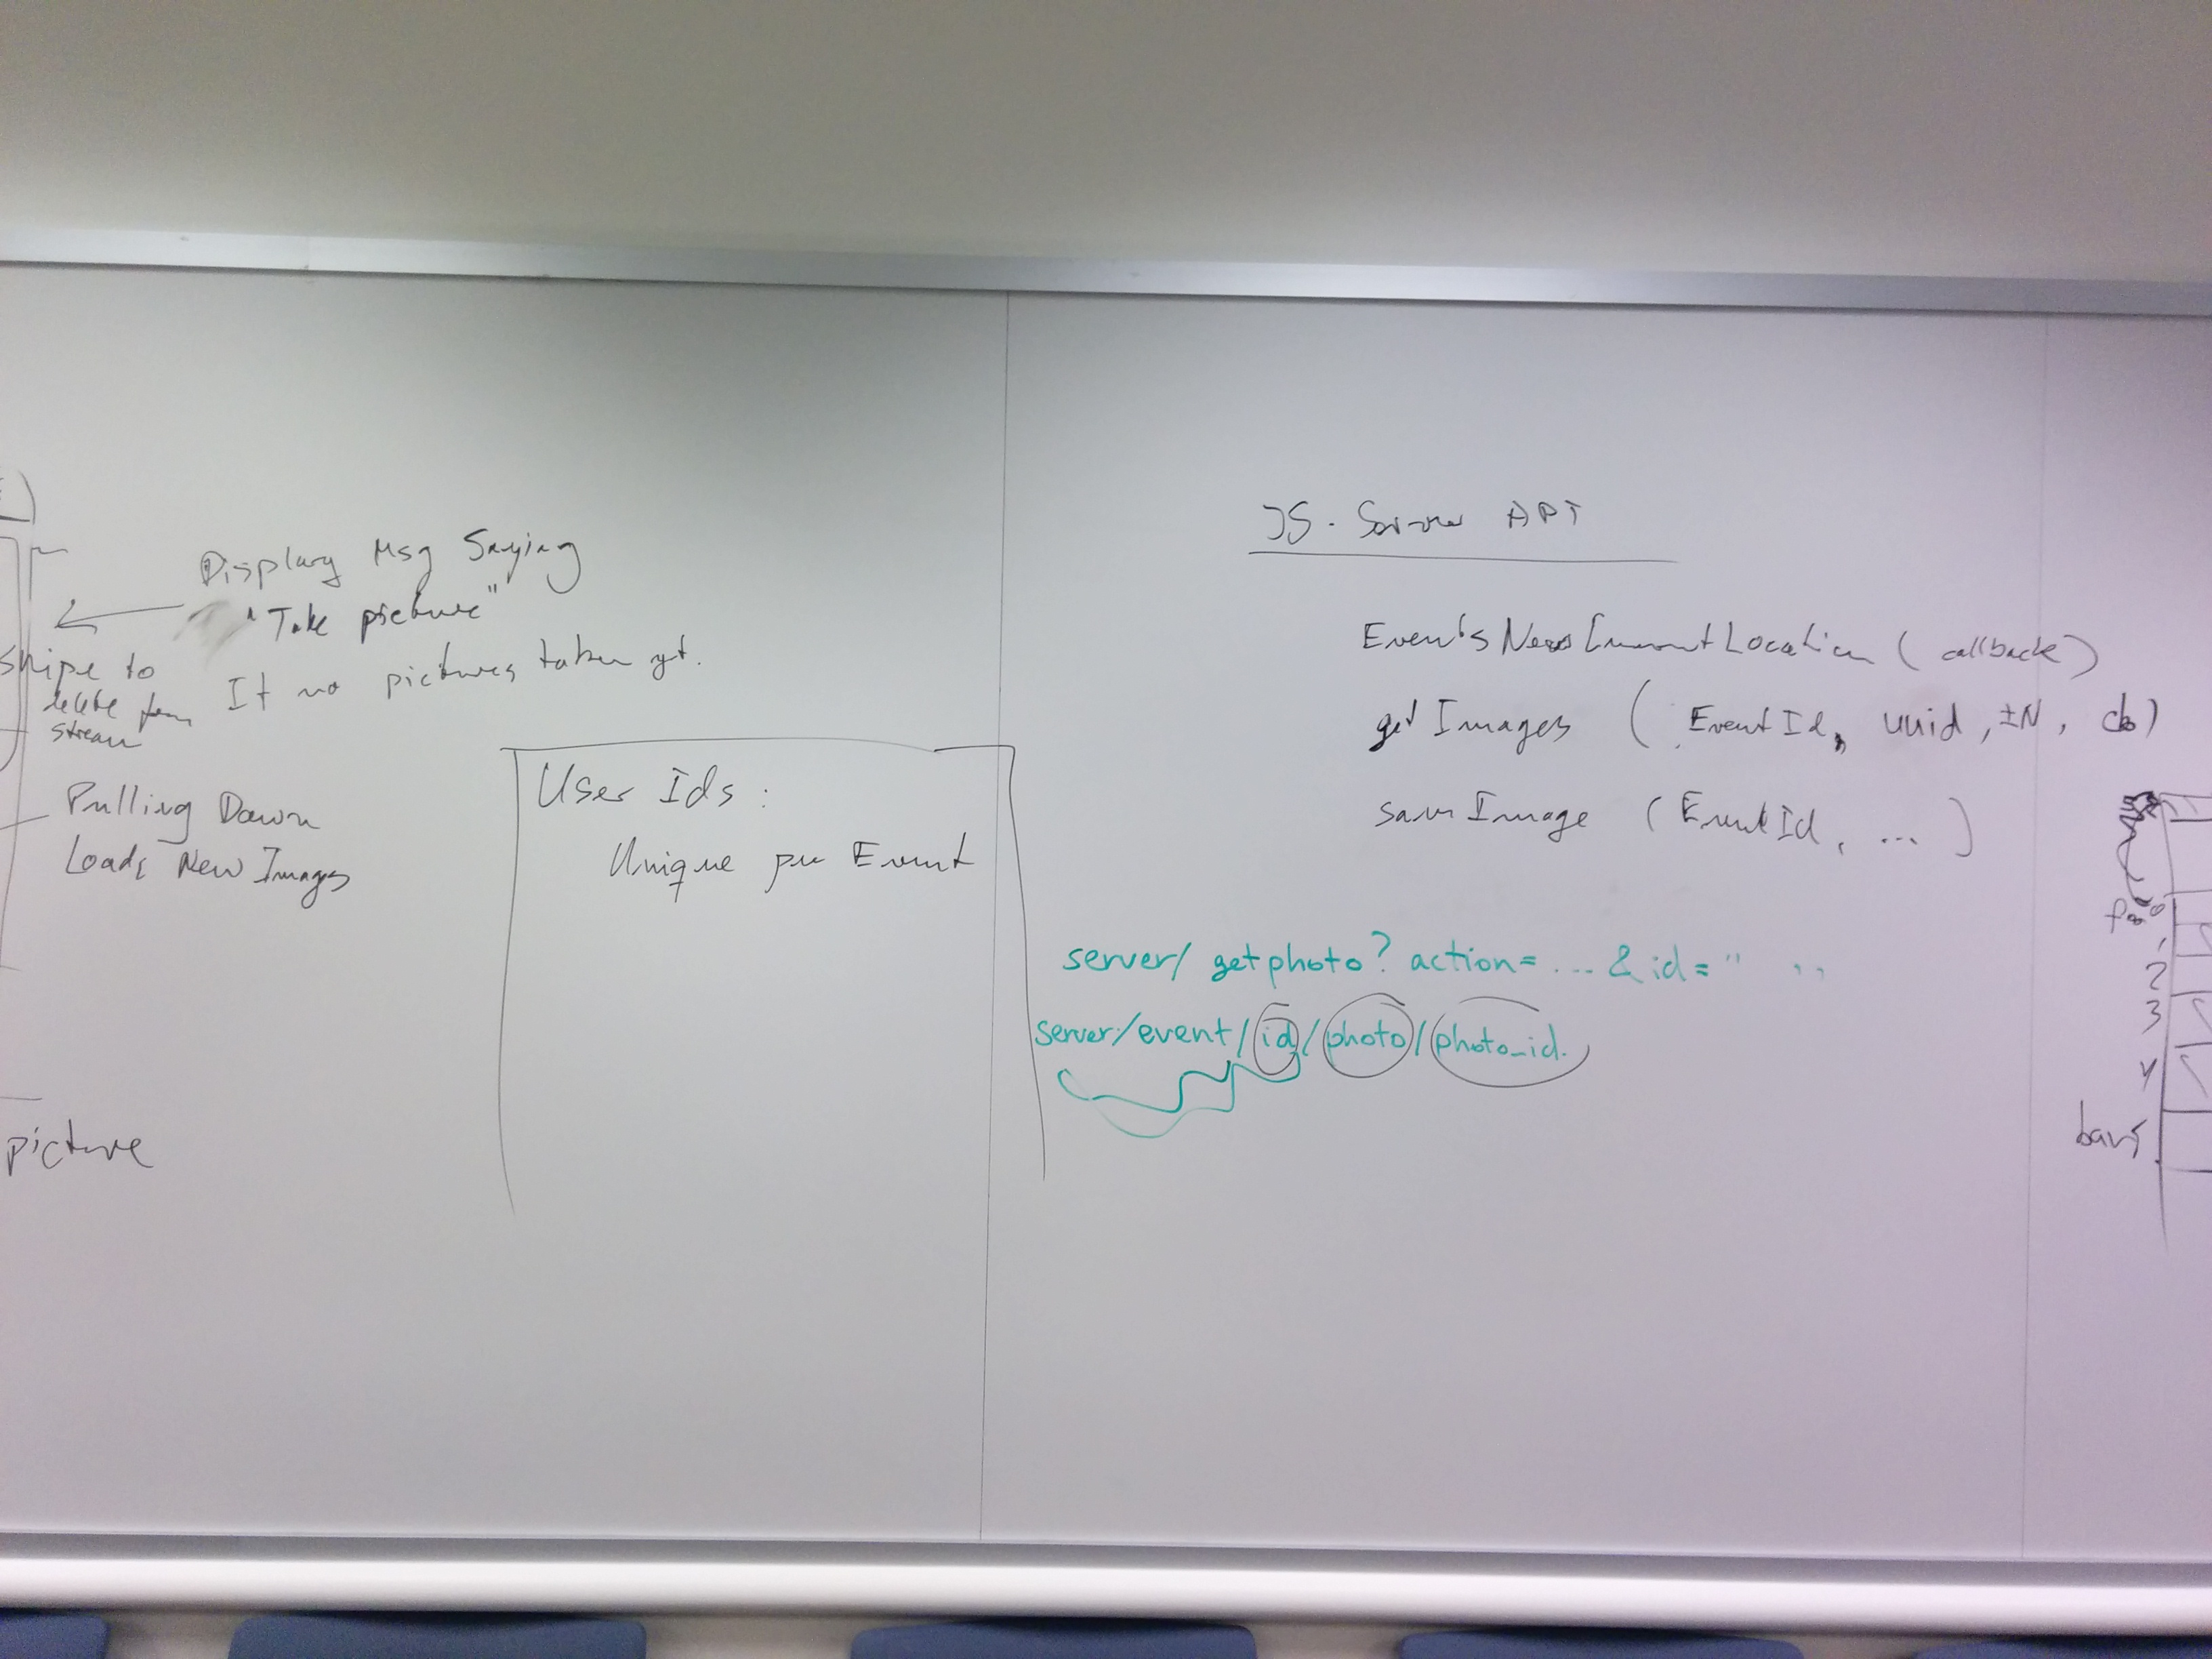 Display Msg Saying
"Take picture"
If no pictures taken yet.
Swipe to
delete from
stream
Pulling Down
Loads New Images
picture
User Ids:
Unique per Event
JS - Server API
Events Near Current Location (callback)
get Images (Event Id, uuid, ±N, cb)
save Image (Event Id, ...)
server/ getphoto? action= ... & id= " ..
server/event/id/photo/photo_id.
foo
1
2
3
4
bar